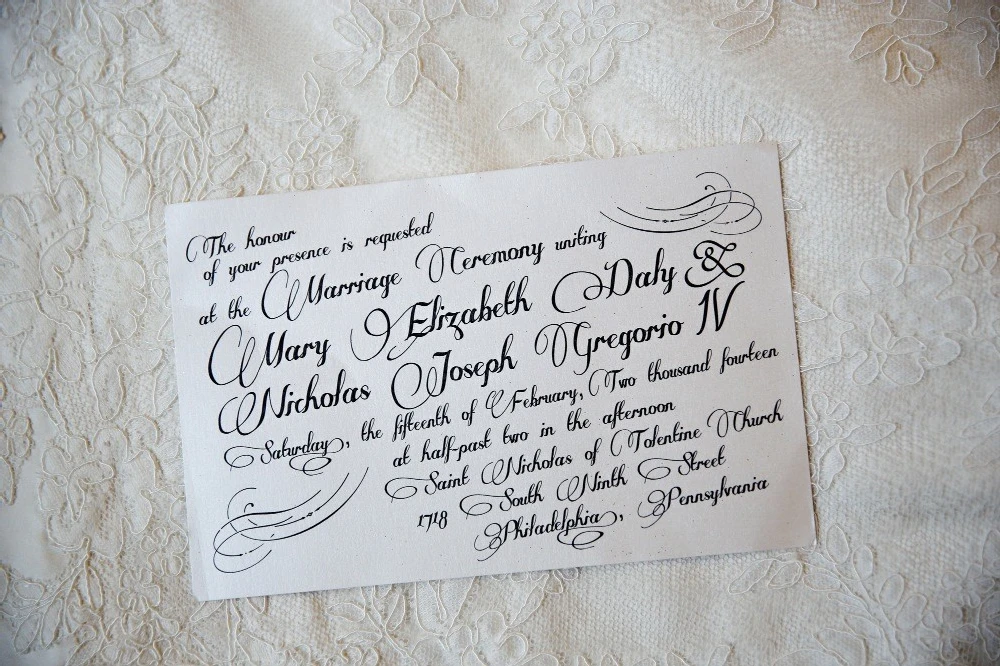 The honour
of your presence is requested
at the Marriage Ceremony uniting
Mary Elizabeth Daly &
Nicholas Joseph Gregorio IV
Saturday, the fifteenth of February, Two thousand fourteen
at half-past two in the afternoon
Saint Nicholas of Tolentine Church
1718 South Ninth Street
Philadelphia, Pennsylvania